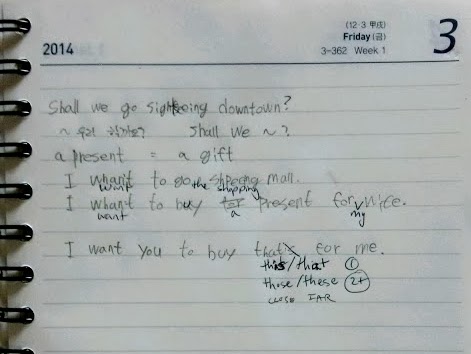 (12·3 甲戌)
Friday (금)
3
2014
3-362 Week 1
Shall we go sightseeing downtown?
~ 우리 할까요? Shall we ~?
a present = a gift
I whan't to go shopping mall.
want the shopping
I whan't to buy present for wife.
want a my
I want you to buy that for me.
this/that ①
those/these 2+
CLOSE FAR